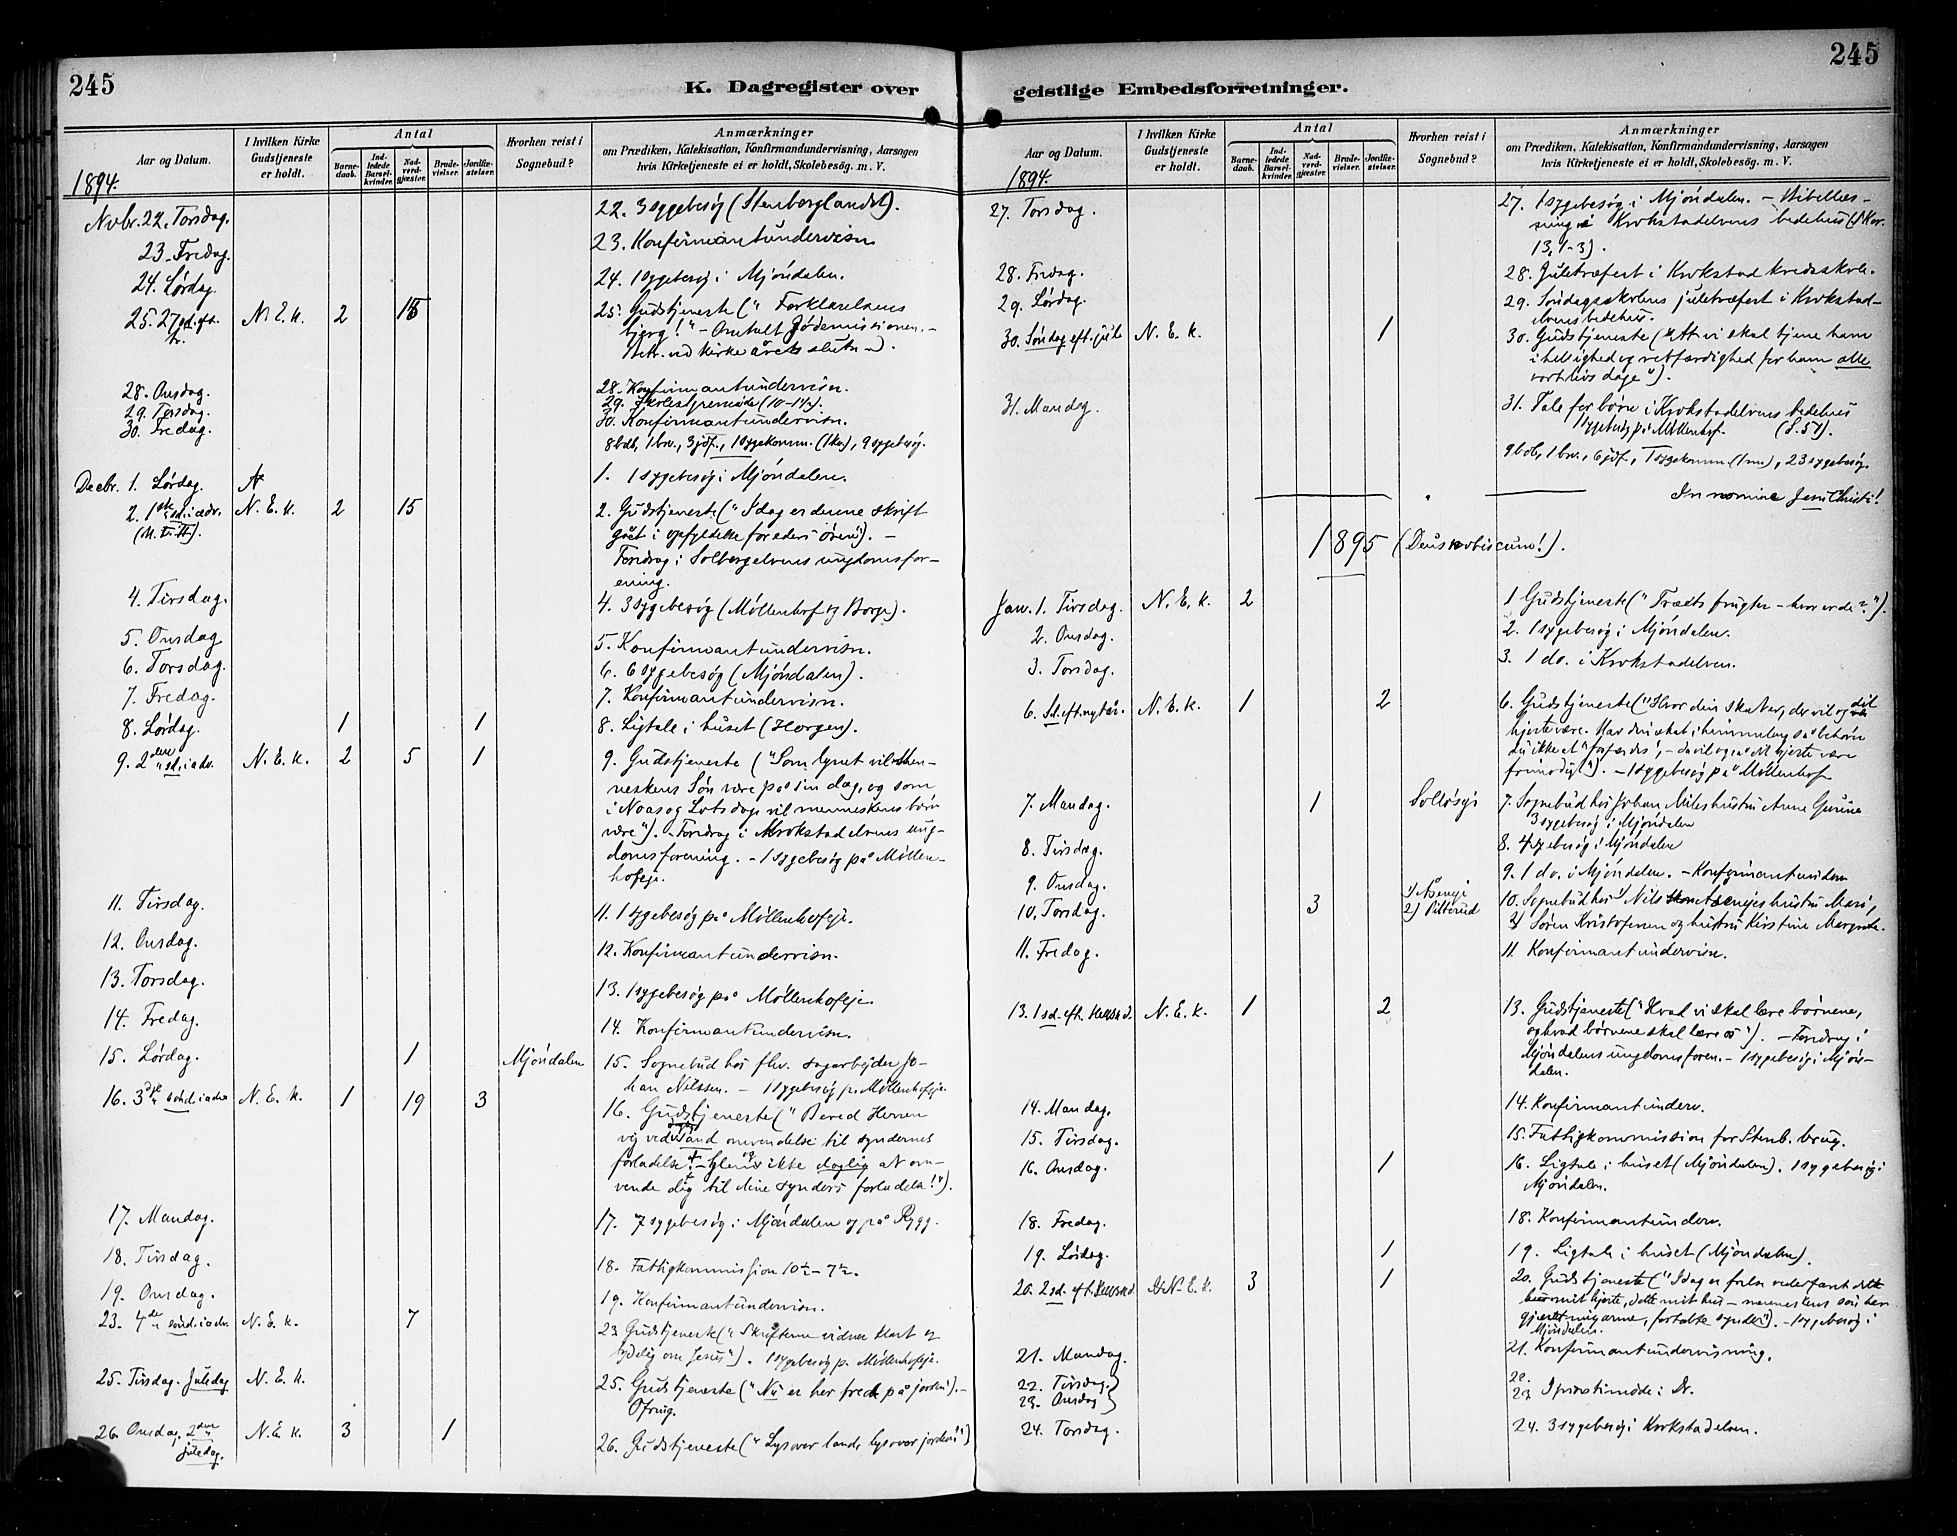 245
K. Dagregister over
Aar og Datum.
I hvilken Kirke
Gudstjeneste
er holdt.
Antal
Barne-
daab.
Ind-
ledede
Barsel-
kvinder.
Nad-
verd-
gjæster.
Brude-
vielser.
Jordfæ-
stelser.
Hvorhen reist i
Sognebud?
Anmærkninger
om Prædiken, Katekisation, Konfirmandundervisning, Aarsagen
hvis Kirketjeneste ei er holdt, Skolebesög. m. V.
1894.
Novbr. 22. Torsdag. 22. 3 sygebesøg (Stenberglandet).
23. Fredag. 23. Konfirmantundervisn.
24. Lørdag. 24. 1 sygebesøg i Mjøndalen.
25. 27de s. eft. N. E. k. 2 25. Gudstjeneste ("Forklarelsens
tr. bjerg!" – Omtalt Jødemissionen. –
ved kirkeårets slutn –).
28. Onsdag. 28. Konfirmantundervisn.
29. Torsdag. 29. Skolestyremøde
30. Fredag. 30. Konfirmantundervisn.
8 bdb, 1 brv., 3 jdf., 1 sygekomm. (1 kv.), 9 sygebsøg.
Decbr. 1. Lørdag. 1. 1 sygebesøg i Mjøndalen.
2. 1ste sd. i adv. N. E. k. 2 15 2. Gudstjeneste ("I dag er denne skrift
gået i opfyldelse for eders ører"). –
Foredrag i Solbergelvens ungdomsfor–
ening.
4. Tirsdag. 4. 3 sygebesøg (Møllenhof og Borge).
5. Onsdag 5. Konfirmantundervisn.
6. Torsdag. 6. 6 sygebesøg (Mjøndalen).
7. Fredag. 7. Konfirmantundervisn.
8. Lørdag. 1 1 8. Ligtale i huset (Horgen).
9. 2den sd. i adv. N. E. k. 2 5 1 9. Gudstjeneste ("Som lynet vil men–
neskens Søn være på sin dag, og som
i Noas og Lots dage vil menneskens børn
være"). – Foredrag i Krokstadelvens ung–
domsforening. – 1 sygebesøg på Møllen–
hofeje.
11. Tirsdag. 11. 1 sygebesøg på Møllenhofeje.
12. Onsdag. 12. Konfirmantundervisn.
13. Torsdag. 13. 1 sygebesøg på Møllenhofeje.
14. Fredag. 14. Konfirmantundervisn.
15. Lørdag. 1 Mjøndalen 15. Sognebud hos fhv. sagarbejder Jo–
han Nilssen. – 1 sygebesøg p. Møllenhofeje.
16. 3die sønd. i adv. N. E. k. 1 19 3 16. Gudstjeneste ("Bered Herren
vej ved sand omvendelse til syndernes
forladelse! – Glem ikke daglig at om–
vende dig til dine synders forladelse!").
17. Mandag. 17. 7 sygebesøg i Mjøndalen og på Rygg.
18. Tirsdag. 18. Fattigkommission 10½ – 7½.
19. Onsdag. 19. Konfirmantundervisn.
23. 4de sønd. i adv. N. E. k. 7 23. Gudstjeneste ("Skrifterne vidner klart og
tydelig om Jesus"). 1 sygebesøg p. Møllenhofeje.
25. Tirsdag. Juledag N. E. k. 25. Gudstjeneste ("Nu er her fred på jorden"). –
Ofring.
26. Onsdag. 2den N. E. k. 3 1 26. Gudstjeneste ("Lys over land, lys over jorden!")
juledag.
245
geistlige Embedsforretninger.
Aar og Datum.
I hvilken Kirke
Gudstjeneste
er holdt.
Antal
Barne-
daab.
Ind-
ledede
Barsel-
kvinder.
Nad-
verd-
gjæster.
Brude-
vielser.
Jordfæ-
stelser.
Hvorhen reist i
Sognebud?
Anmærkninger
om Prædiken, Katekisation, Konfirmandundervisning, Aarsagen
hvis Kirketjeneste ei er holdt, Skolebesög. m. V.
1894.
27. Torsdag. 27. 1 sygebesøg i Mjøndalen. – Bibellæs–
ning i Krokstadelvens bedehus (1 Kor.
13, 1–3).
28. Fredag. 28. Juletræfest i Krokstad kredsskole.
29. Lørdag. 29. Søndagsskolens juletræfest i Krokstad–
elvens bedehus.
30. Søndag eft. jul N. E. k. 1 30. Gudstjeneste ("At vi skal tjene ham
i hellighed og retfærdighed for ham alle
vort livs dage").
31. Mandag. 31. Tale for børn i Krokstadelvens bedehus
1 sygebesøg på Møllenhof. (S. 57).
9 bdb, 1 brv., 6 jdf., 1 sygekomm. (1 m), 23 sygebesøg.
In nomine Jesu Christi!
1895 (Deus nobiscum!).
Jan. 1. Tirsdag. N. E. k. 2 1 Gudstjeneste ("Træets frugter – hvor er de?").
2. Onsdag. 2. 1 sygebesøg i Mjøndalen.
3. Torsdag. 3. 1 do. i Krokstadelven.
6. Sd. eft. nytår. N. E. k. 1 2 6. Gudstjeneste ("Hvor din skat er, der vil og dit
hjerte være. Har din skat i himmelen, så behøver
du ikke at "forfærdes", – da vil også dit hjerte være
frimodigt"). – 1 sygebesøg på Møllenhof
7. Mandag. 1 7. Sognebud hos Johan Miles hustru Anne
3 sygebesøg i Mjøndalen
8. Tirsdag. 8. 4 sygebesøg i Mjøndalen
9. Onsdag. 9. 1 do. i Mjøndalen. – Konfirmantunderv
10. Torsdag. 3 1) Åseneje 10. Sognebud hos 1) Nils hustru Mari,
2) Pitterud 2) Søren Kristofersen og hustru Kirstine Margrete.
11. Fredag. 11. Konfirmantundervisn.
13. 1 sd. eft. N. E. k. 1 2 13. Gudstjeneste ("Hvad vi skal lære børnene,
og hvad børnene skal lære os"). – Foredrag i
Mjøndalens ungdomsforen. – 1 sygebesøg i Mjøn–
dalen.
14. Mandag. 14. Konfirmantunderv.
15. Tirsdag. 15. Fattigkommission for Stenb. brug.
16. Onsdag. 1 16. Ligtale i huset (Mjøndalen). 1 sygebesøg i
Mjøndalen.
18. Fredag. 18. Konfirmantunderv.
19. Lørdag. 1 19. Ligtale i huset (Mjøndalen).
20. 2 sd. eft. N. E. k. 3 1 20. Gudstjeneste ("Idag er frelse vederfaret dette
mit hjerte, dette mit hus – menneskens søn har
fortabte synder"). – 1 sygebesøg i
Mjøndalen.
21. Mandag. 21. Konfirmantundervisning.
22. Tirsdag. 22.
23. Onsdag 23. I præstemøde i Dr.
24. Torsdag. 24. 3 sygebesøg i Krokstadelven.